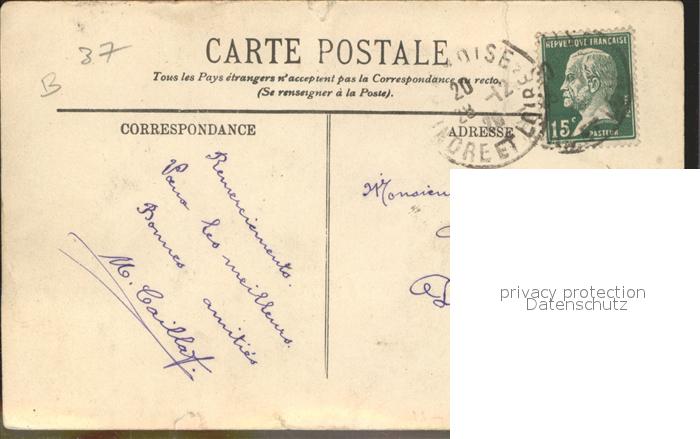 37
B
CARTE POSTALE
Tous les Pays étrangers n'acceptent pas la Correspondance au recto.
(Se renseigner à la Poste).
CORRESPONDANCE
ADRESSE
REPUBLIQUE FRANÇAISE
15c
PASTEUR
OISE
20 -12
INDRE ET LOIRE
Remerciements.
Vœux les meilleurs.
Bonnes amitiés
M. Caillat
Monsieur
privacy protection
Datenschutz